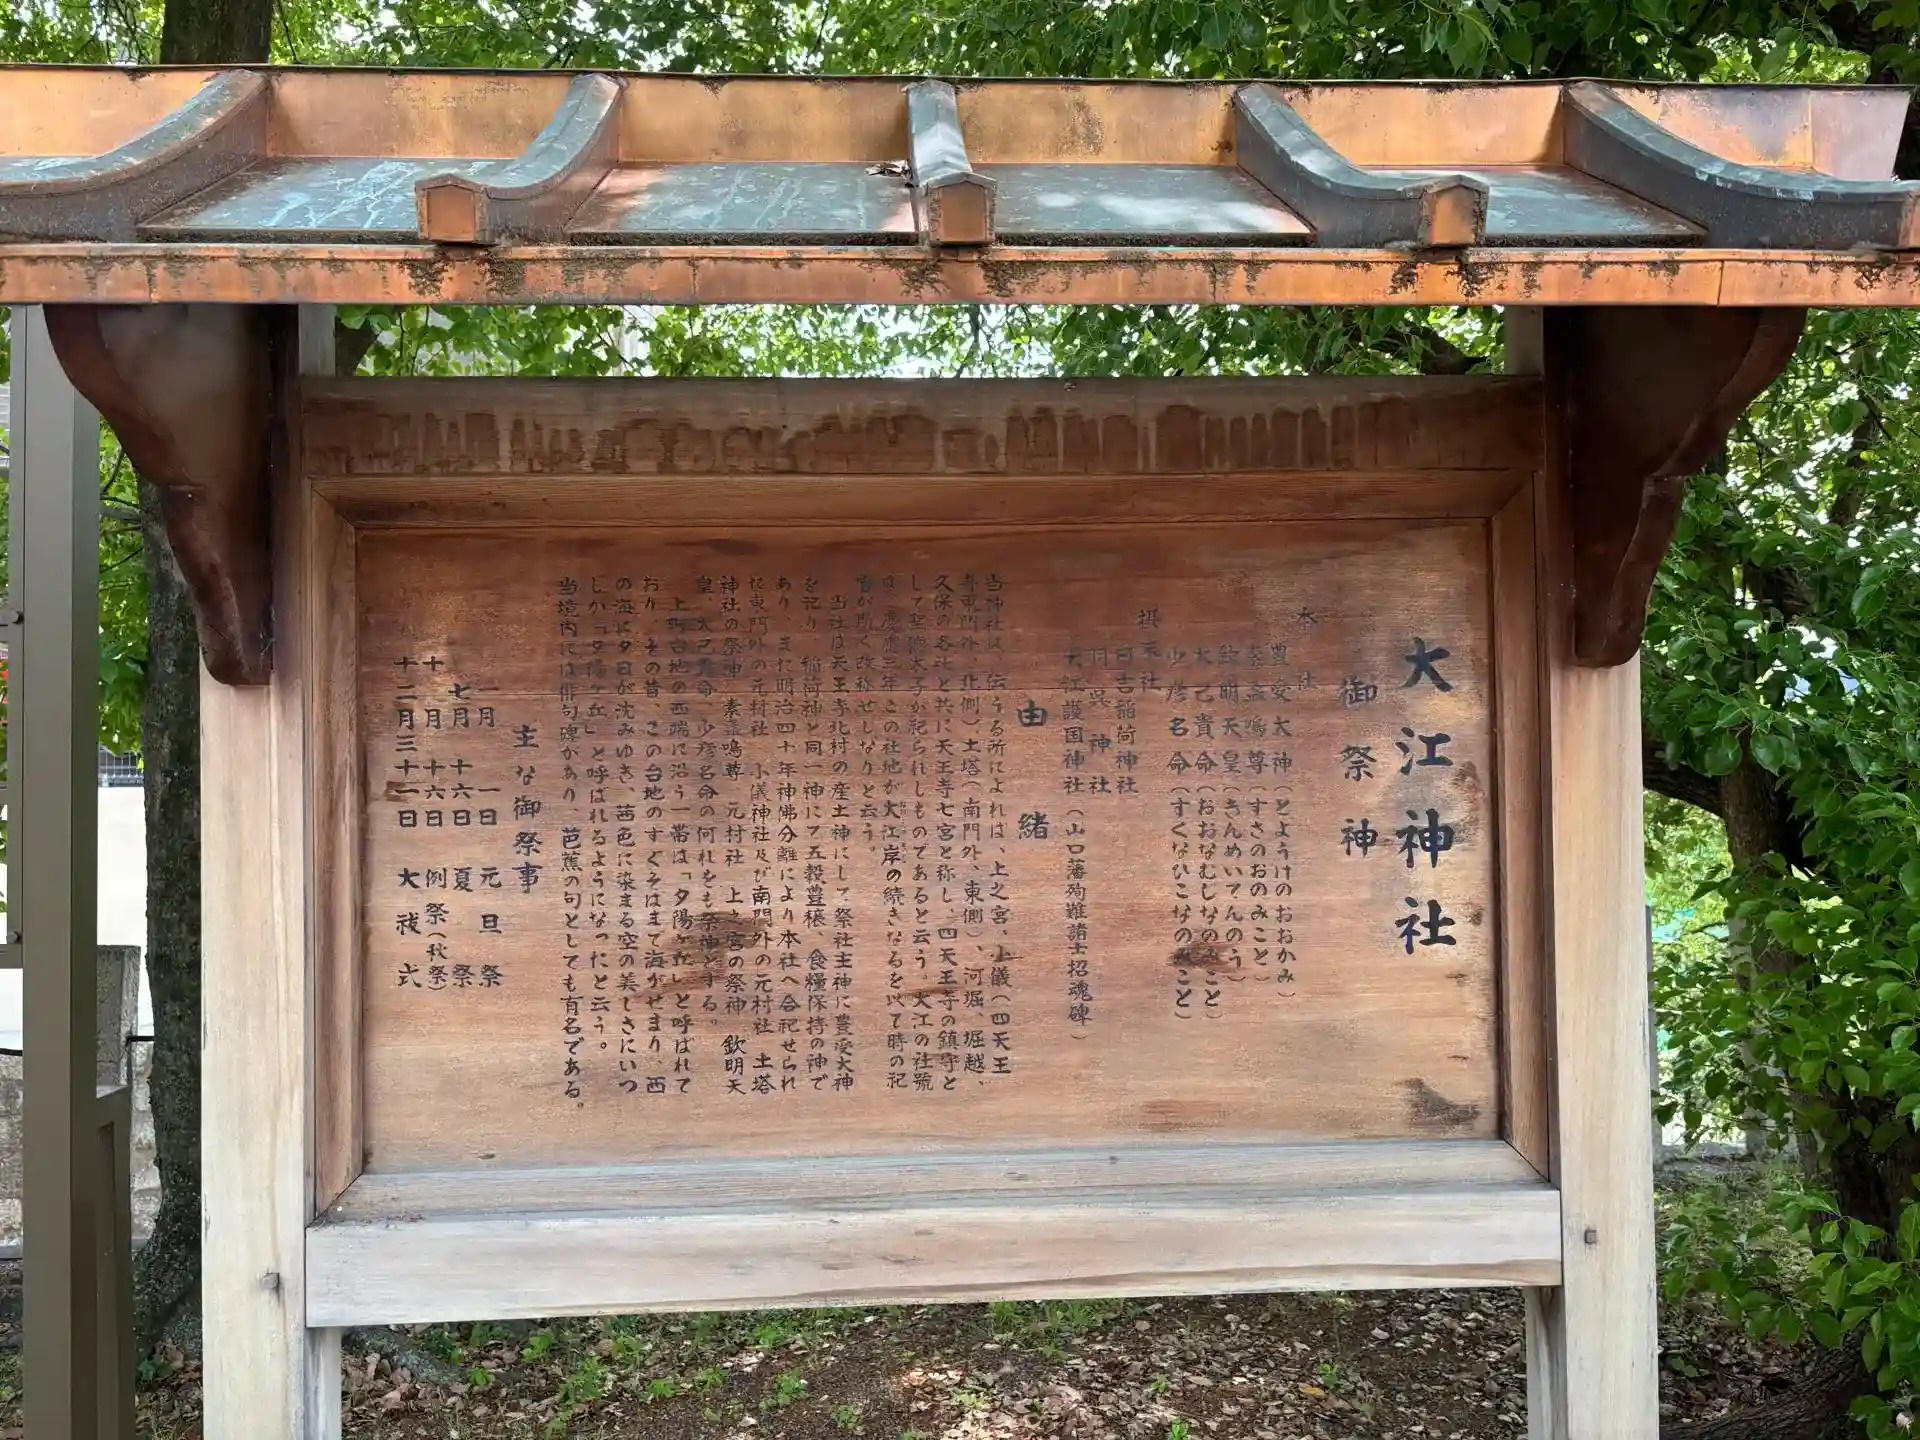 大江神社
御祭神
本社
豊受大神(とようけのおおかみ)
素盞嗚尊(すさのおのみこと)
欽明天皇(きんめいてんのう)
大己貴命(おおなむじなのみこと)
少彦名命(すくなひこなのみこと)
摂末社
日吉稲荷神社
羽呉神社
大江護国神社(山口藩殉難諸士招魂碑)
由緒
当神社は、伝うる所によれば、上之宮、小儀(四天王
寺東門外、北側)土塔(南門外、東側)、河堀、堀越、
久保の各社と共に天王寺七宮と称し、四天王寺の鎮守と
して聖徳太子が祀られしものであると云う。大江の社號
は、慶應三年、この社地が大江岸の続きなるを以て時の祀
官が斯く改称せしなりと云う。
当社は天王寺北村の産土神にして祭社主神に豊受大神
を祀り、稲荷神と同一神にて五穀豊穣、食糧保持の神で
あり、また明治四十年神佛分離により本社へ合祀せられ
た東門外の元村社 小儀神社及び南門外の元村社 土塔
神社の祭神 素盞嗚尊、元村社 上之宮の祭神 欽明天
皇、大己貴命、少彦名命の何れをも祭神とする。
上町台地の西端に沿う一帯は「夕陽ヶ丘」と呼ばれて
おり、その昔、この台地のすぐそばまで海がせまり、西
の海に夕日が沈みゆき、茜色に染まる空の美しさにいつ
しか「夕陽ヶ丘」と呼ばれるようになったと云う。
当境内には俳句碑があり、芭蕉の句としても有名である。
主な御祭事
一月 一日 元旦祭
七月 十六日 夏祭
十月 十六日 例祭(秋祭)
十二月三十一日 大祓式